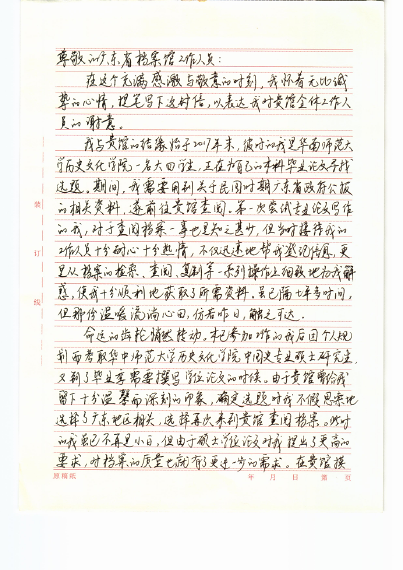 尊敬的广东省档案馆工作人员：
在这个充满感激与敬意的时刻，我怀着无比诚
挚的心情，提笔写下这封信，以表达我对贵馆全体工作人
员的谢意。
我与贵馆的结缘始于2017年末，彼时的我是华南师范大
学历史文化学院一名大四学生，正在为自己的本科毕业论文寻找
选题。期间，我需要用到关于民国时期广东省政府公报
的相关资料，遂前往贵馆查阅。第一次尝试专业论文写作
的我，对于查阅档案一事也是知之甚少，但当时接待我的
工作人员十分耐心十分热情，不仅迅速地帮我登记信息，更
是从档案的检索、查阅、复制等一系列操作上细致地为我解
惑，使我十分顺利地获取了所需资料。虽已隔七年多时间，
但那份温暖流淌心田，仿若昨日，触之可达。
命运的齿轮悄然转动。本已参加工作的我后因个人规
划而考取华中师范大学历史文化学院中国史专业硕士研究生，
又到了毕业季需要撰写学位论文的时候。由于贵馆曾给我
留下十分温馨而深刻的印象，确定选题时我不假思索地
选择了广东地区相关，选择再次来到贵馆查阅档案。此时
的我虽已不再是小白，但由于硕士学位论文对我提出了更高的
要求，对档案的质量也就有了更进一步的需求。在贵馆摸
装
订
线
原稿纸
年 月 日 第 页